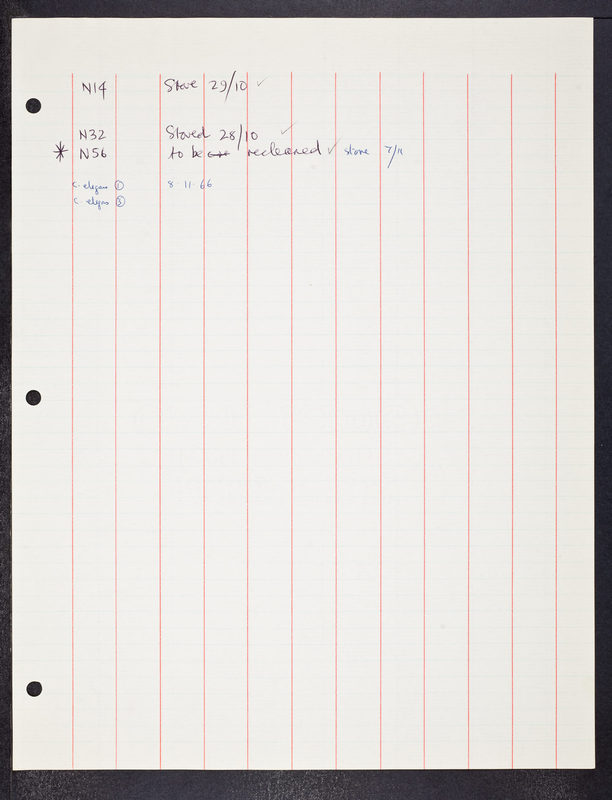 N14 Store 29/10 ✓
N32 Stored 28/10 ✓
* N56 to be recleaned ✓ store 7/11
C. elegans ① 8.11.66
C. elegans ③